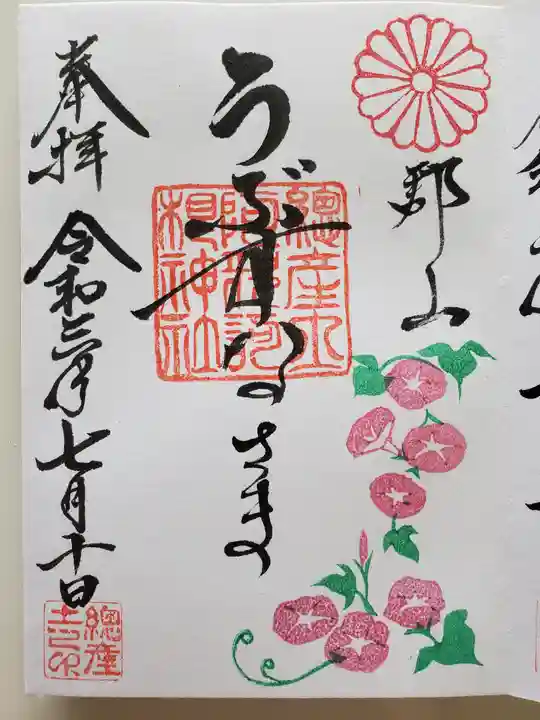 郡山
うぶすなさま
總産土
阿邪訶
根神社
奉拝 令和三年七月十日
總産
土印